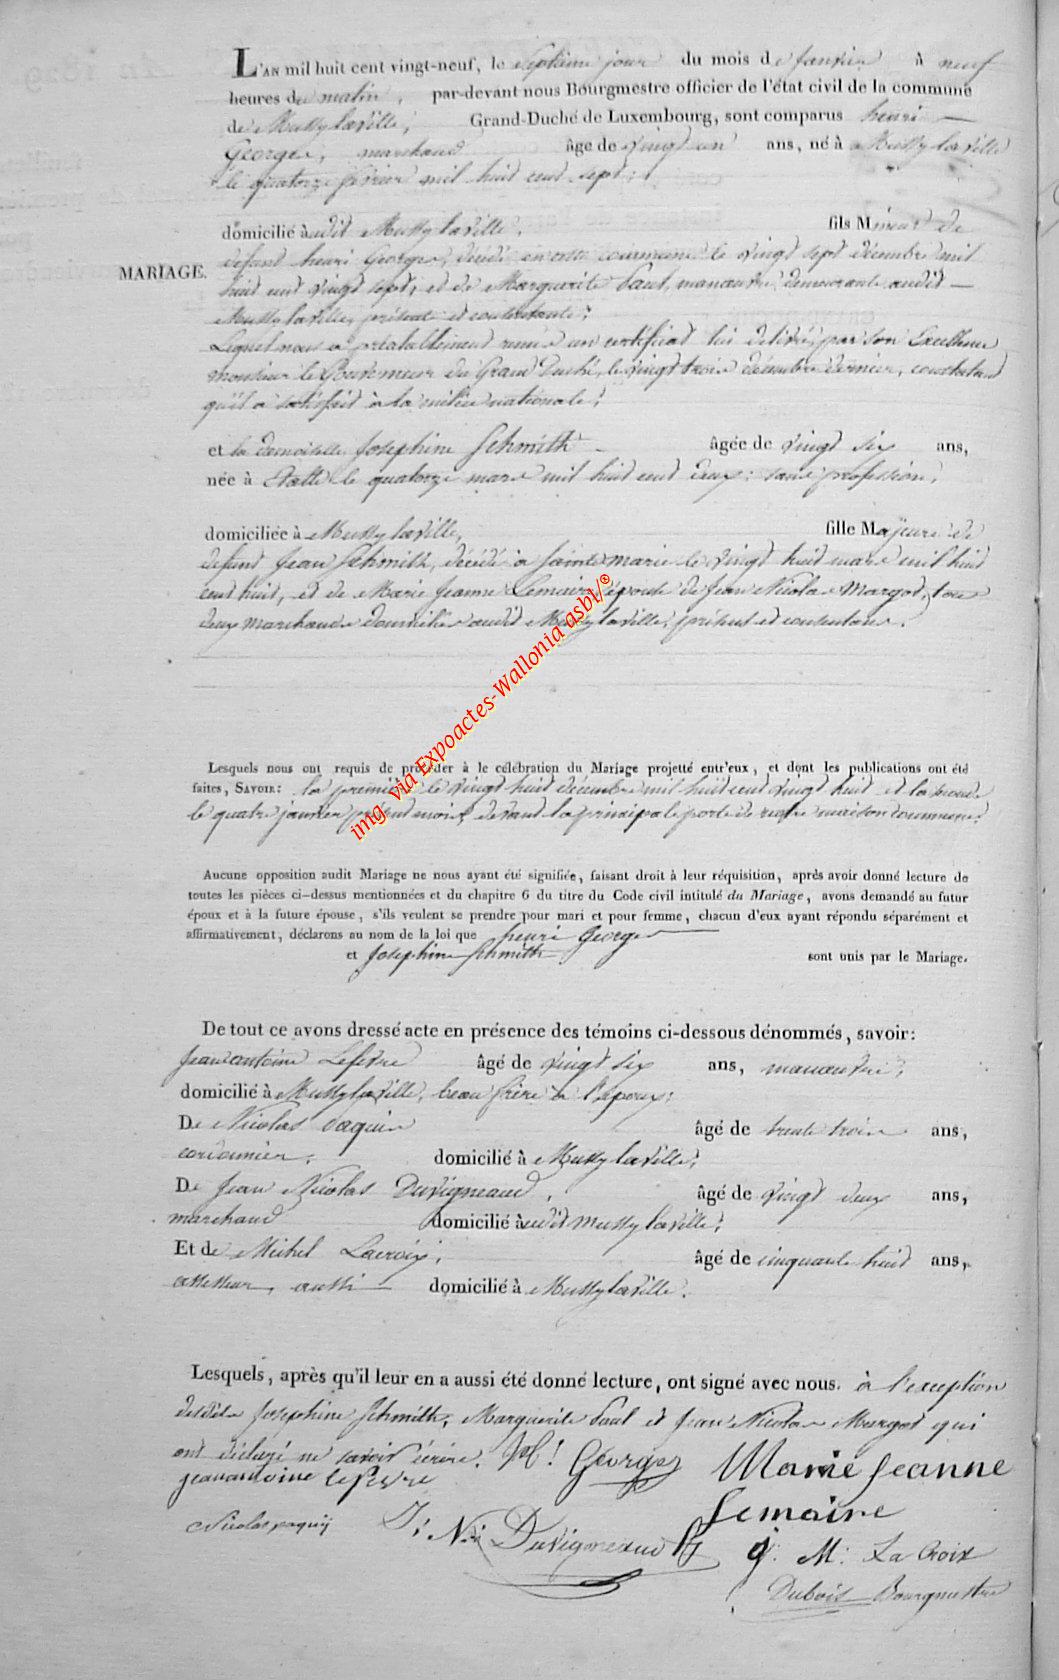 L'AN mil huit cent vingt-neuf, le septième jour du mois de janvier à neuf
heures du matin, par-devant nous Bourgmestre officier de l'état civil de la commune
de Mussylaville, Grand-Duché de Luxembourg, sont comparus henri
Georges, marchand âge de vingt un ans, né à Mussylaville
le quatorze février mil huit cent sept;
domicilié audit Mussylaville, fils Mineur de
defunt henri Georges, décédé en cette commune le vingt sept décembre mil
MARIAGE.
huit cent vingt sept, et de Marguerite Paul, manœuvre, demeurante audit
Mussylaville, présente et consentante;
Lequel nous a préalablement remis un certificat lui délivré par son Excellence
monsieur le Gouverneur du Grand Duché, le vingt trois décembre dernier, constatant
qu'il a satisfait à la milice nationale;
et la demoiselle Joséphine Schmith âgée de vingt six ans,
née à Etalle le quatorze mars mil huit cent deux; sans profession,
domiciliée à Mussylaville, fille Majeure de
defunt Jean Schmith, décédé à Sainte marie le vingt huit mars mil huit
cent huit, et de Marie Jeanne Lemaire épouse de Jean Nicolas Margot, tous
deux marchands domiciliés audit Mussylaville, présents et consentans.
img via Expoactes-Wallonia asbl/®
Lesquels nous ont requis de procéder à le célébration du Mariage projetté entr'eux, et dont les publications ont été
faites, SAVOIR: la première le vingt huit décembre mil huit cent vingt huit et la seconde
le quatre janvier présent mois, devant la principale porte de notre maison commune;
Aucune opposition audit Mariage ne nous ayant été signifiée, faisant droit à leur réquisition, après avoir donné lecture de
toutes les pièces ci-dessus mentionnées et du chapitre 6 du titre du Code civil intitulé du Mariage, avons demandé au futur
époux et à la future épouse, s'ils veulent se prendre pour mari et pour femme, chacun d'eux ayant répondu séparément et
affirmativement, déclarons au nom de la loi que henri Georges
et Joséphine Schmith sont unis par le Mariage.
De tout ce avons dressé acte en présence des témoins ci-dessous dénommés, savoir:
Jean antoine Lefevre âgé de vingt six ans, manœuvre,
domicilié à Mussylaville, beau frère à l'époux;
De Nicolas paquin âgé de trente trois ans,
cordonnier, domicilié à Mussylaville;
De Jean Nicolas Duvigneaud, âgé de vingt deux ans,
marchand domicilié audit mussylaville;
Et de Michel Lacroix, âgé de cinquante huit ans,
assesseur, aussi domicilié à Mussylaville.
Lesquels, après qu'il leur en a aussi été donné lecture, ont signé avec nous. à l'exception
desdits Joséphine Schmith, Marguerite Paul et Jean Nicolas Margot qui
ont déclaré ne savoir écrire. Georges Marie Jeanne
jeanantoine lefevre Lemaire
Nicolas paquin J: N: Duvigneaud M: LaCroix
Dubois Bourgmestre